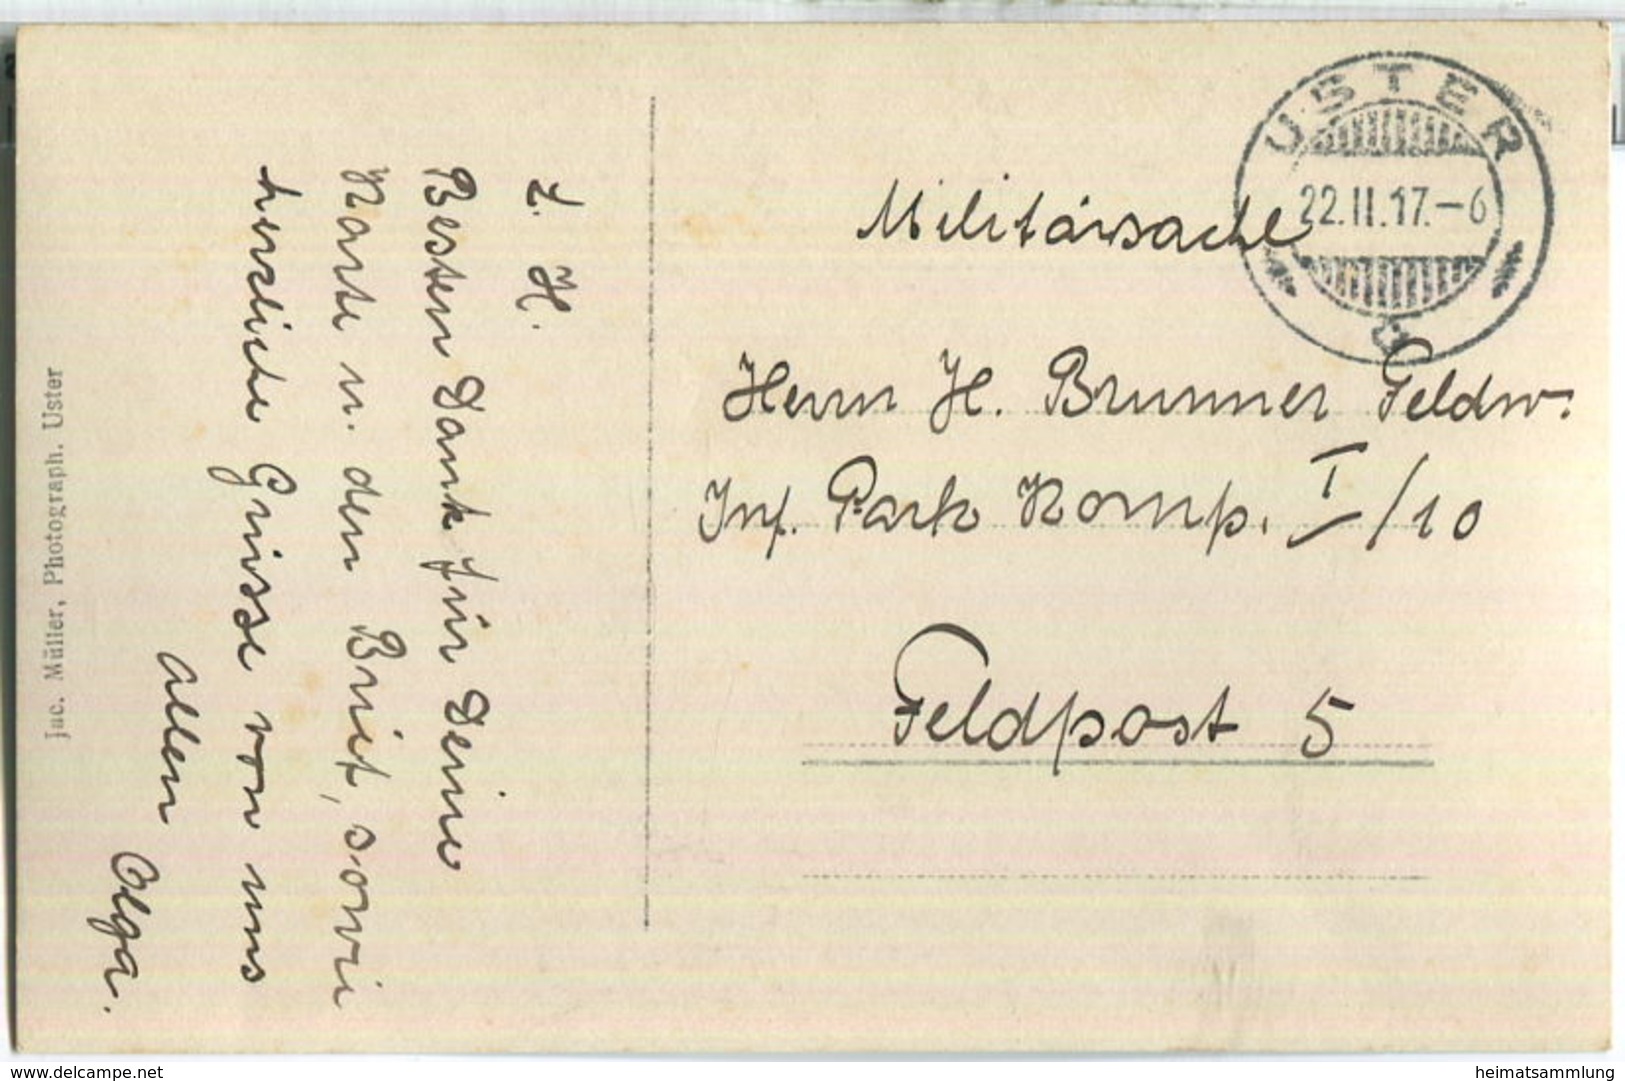 USTER
22.II.17.-6
Militärsache
Herrn H. Brunner Feldw.
Inf. Park Komp. I/10
Feldpost 5
L. H.
Besten Dank für Deine
Karte u. den Brief, sowie
herzliche Grüsse von uns
allen
Olga.
Jac. Müller, Photograph. Uster
delcampe.net
heimatsammlung